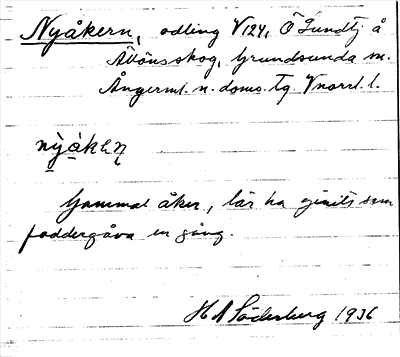 Nyåkern, odling V124, Ö Lundtj å
Älvönsskog, Grundsunda sn.
Ångerml. n. doms. tg. Vnorrl. l.
nỳákḷṇ
Gammal åker, lär ha givits som
faddergåva en gång.
H A Söderberg 1936